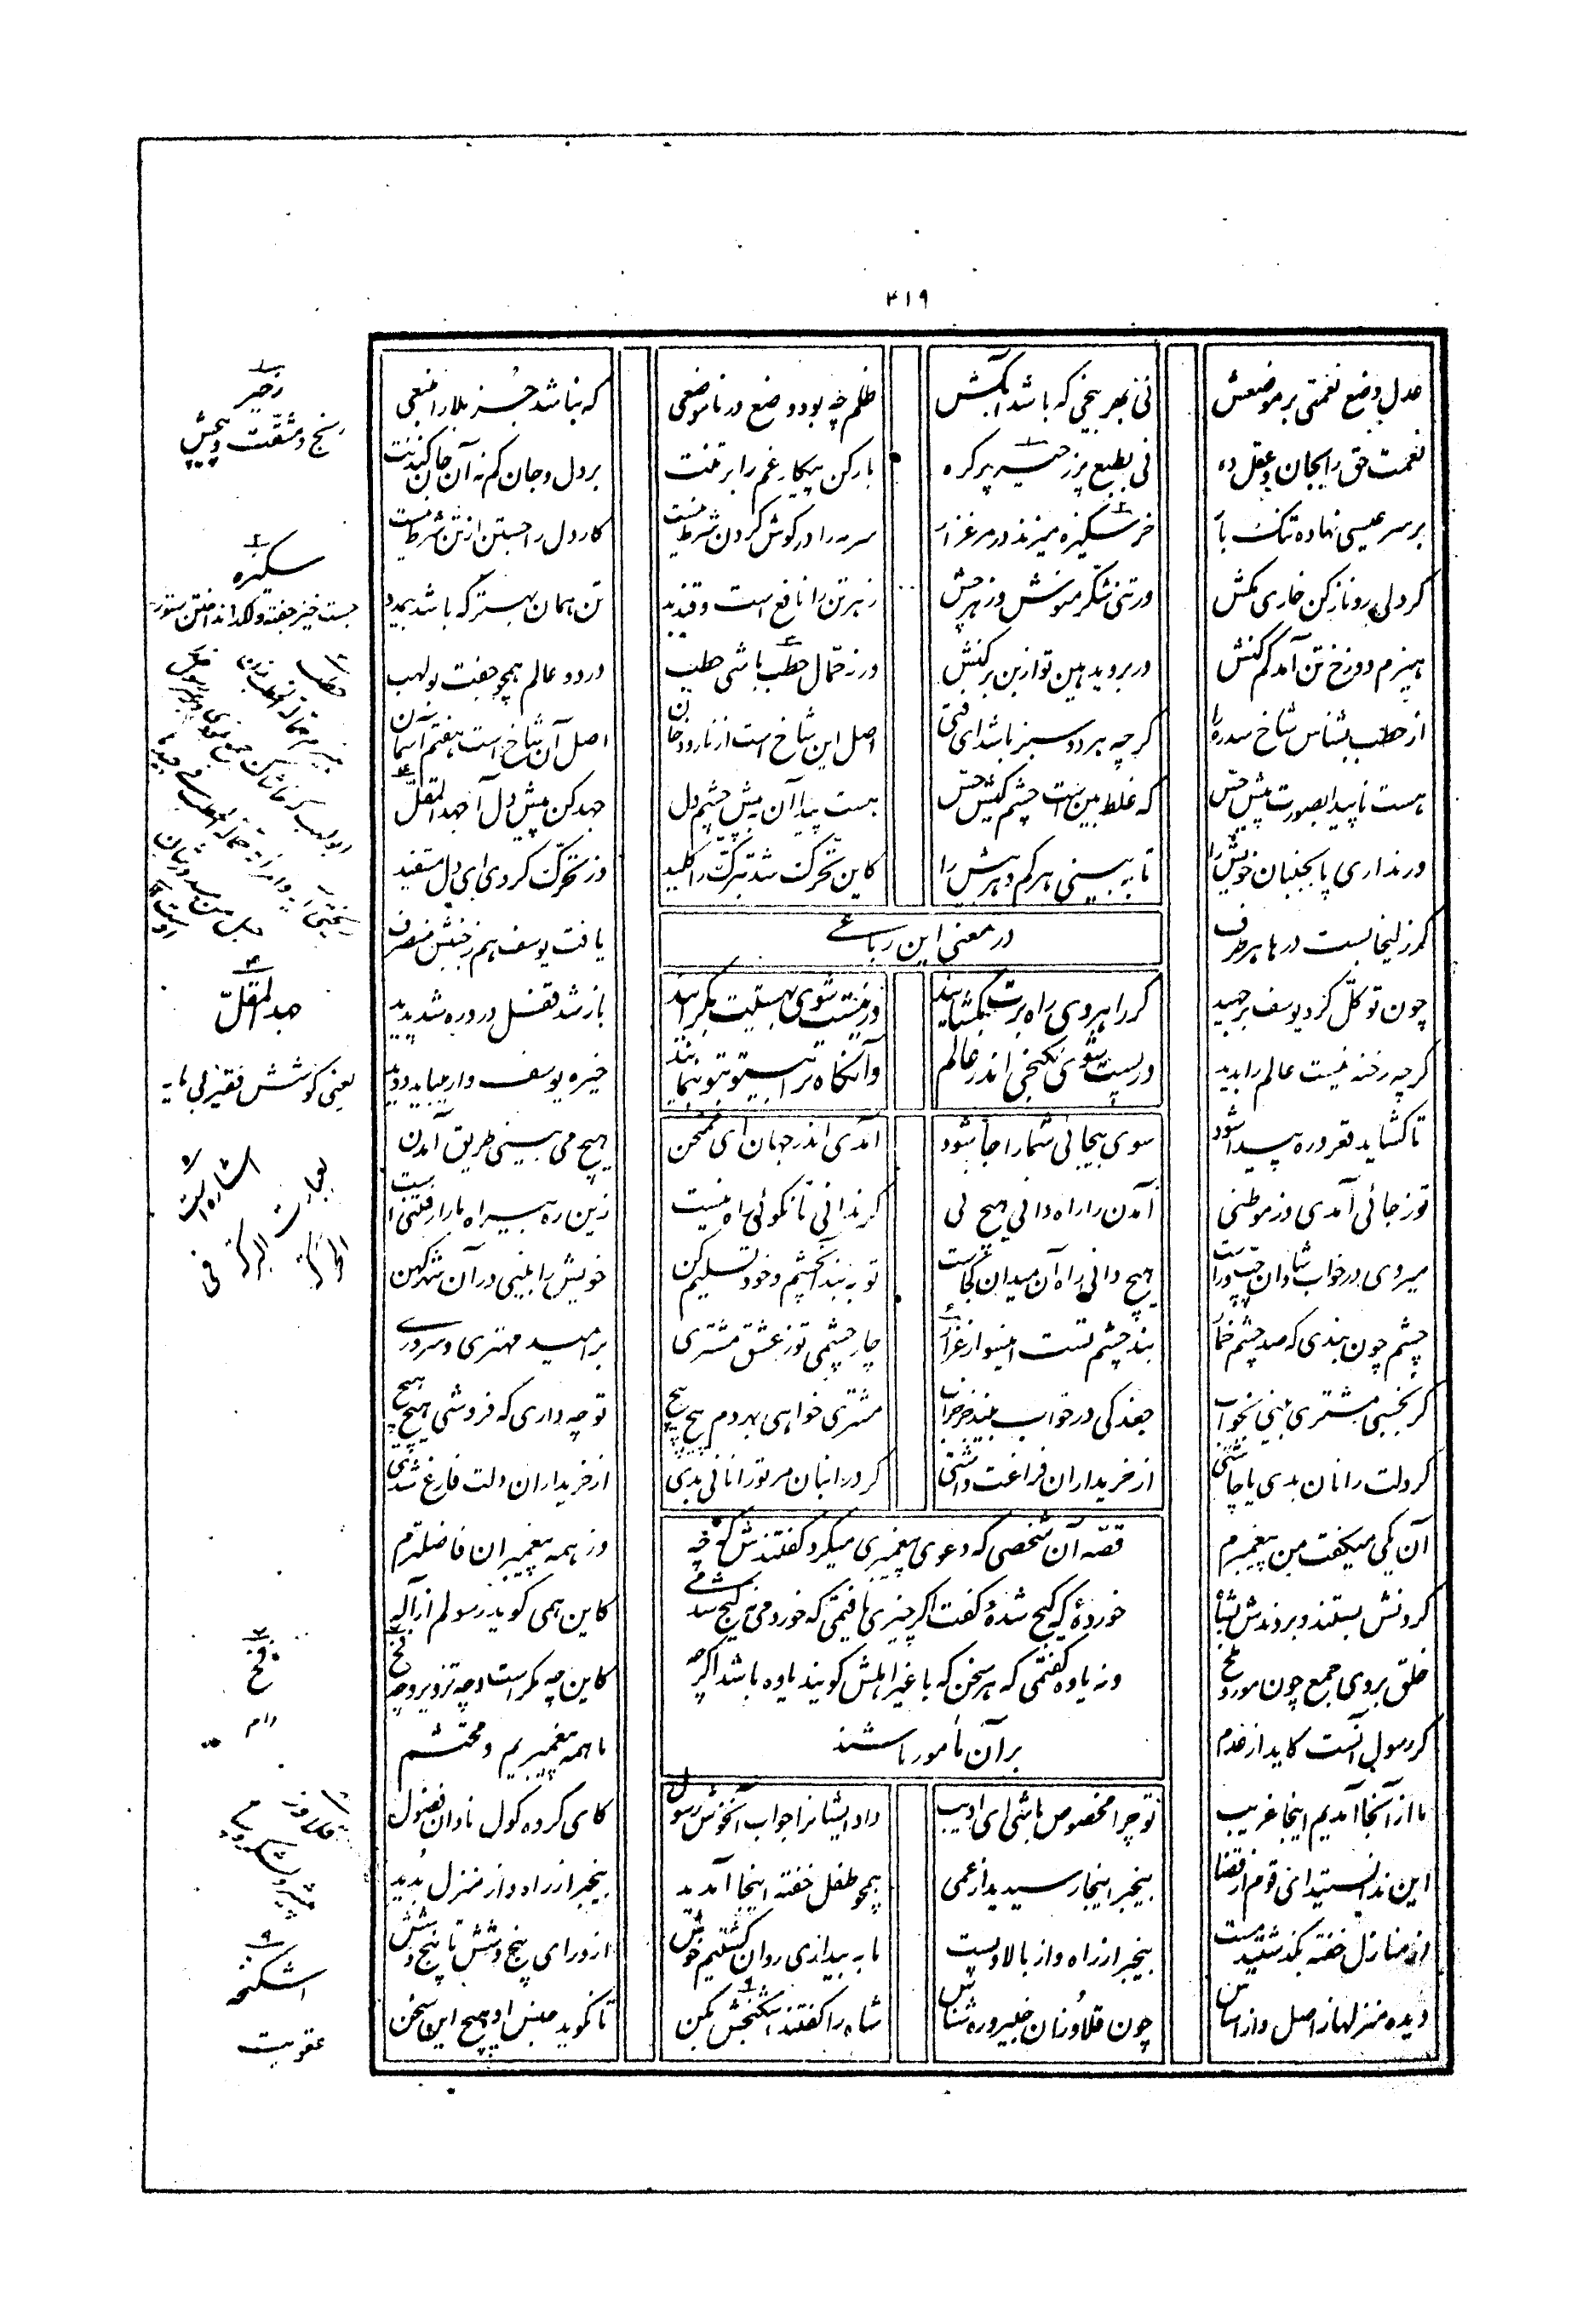 ۴۱۹
عدل وضع نعمتی بر موضعش نی بهر بیخی که باشد آبکش ظلم چه بود وضع در ناموضعی که نباشد جز بلا را منبعی
نعمت حق را بجان و عقل ده نی بطبع پر زحیر پر گره بار کن پیکار غم را بر تنت بر دل و جان کم نه آن جان کندنت
بر سر عیسی نهاده تنگ بار خر سکیزه میزند در مرغزار سرمه را در گوش کردن شرط نیست کار دل را جستن از تن شرط نیست
گر دلی رو ناز کن خاری مکش ور تنی شکر منوش و زهر چش زهر تن را نافع است و قند بد تن همان بهتر که باشد بیمدد
هیزم دوزخ تن آمد کم کنش ور بروید هین تو از بن بر کنش ورنه حمال حطب باشی حطب در دو عالم همچو جفت بولهب
از حطب بشناس شاخ سدره را گرچه هر دو سبز باشد ای فتی اصل این شاخ است از نار و دخان اصل آن شاخ است هفتم آسمان
هست ناپیدا بصورت پیش حس که غلط بین است چشم کیش حس هست پیدا آن به پیش چشم دل جهد کن پیش دل آ جهد المقل
ور نداری پا بجنبان خویش را تا به بینی هر کم و هر بیش را کاین تحرک شد تبرک را کلید وز تحرک کردی ای دل مستفید
در معنی این رباعی
گر زلیخا بست درها هر طرف یافت یوسف هم ز جنبش منصرف
گر راه روی راه برت بگشایند ور نیست شوی بهستیت بگرایند
چون توکل کرد یوسف برجهید باز شد قفل در و ره شد پدید
ور پست شوی نگنجی اندر عالم وآنگاه ترا بیتو بتو بنمایند
گرچه رخنه نیست عالم را پدید خیره یوسف وار میباید دوید
تا گشاید قفل و ره پیدا شود سوی بیجائی شما را جا شود آمدی اندر جهان ای ممتحن هیچ می بینی طریق آمدن
تو ز جائی آمدی وز موطنی آمدن را راه دانی هیچ نی گر ندانی تا نگوئی راه نیست زین ره بیراه ما را رفتنی است
میروی در خواب شادان چپ و راست هیچ دانی راه آن میدان کجاست تو به بند آن چشم و خود تسلیم کن خویش را بینی در آن شهر کهن
چشم چون بندی که صد چشم خمار بند چشم تست اینسو از غرار چار چشمی تو ز عشق مشتری بر امید مهتری و سروری
گر بخسبی مشتری بینی بخواب جغد کی در خواب بیند جز خراب مشتری خواهی بهر دم پیچ پیچ تو چه داری که فروشی هیچ هیچ
گر دلت را نان بدی یا چاشتی از خریداران فراغت داشتی گر در انبان مر ترا نانی بدی از خریداران دلت فارغ شدی
قصه آن شخصی که دعوی پیغمبری میکرد گفتندش چه
خورده که گیج شده گفت اگر چیزی یافتمی که خوردمی نه گیج شدمی
و نه یاوه گفتمی که هر سخن که با غیر اهلش گویند یاوه باشد اگرچه
بر آن مامور باشند
آن یکی میگفت من پیغمبرم وز همه پیغمبران فاضلترم
گردنش بستند و بردندش بشاه کاین همی گوید رسولم از اله
خلق بروی جمع چون مور و ملخ کاین چه مکر است و چه تزویر و چه فخ
گر رسول آنست کاید از عدم ما همه پیغمبریم و محتشم
ما از آنجا آمدیم اینجا غریب تو چرا مخصوص باشی ای ادیب داد ایشانرا جواب آنخوش رسول کای گروه کول نادان فضول
این ندانستید ای قوم از قضا بیخبر اینجا رسیدید از عمی همچو طفل خفته اینجا آمدید بیخبر از راه و از منزل بدید
از منازل خفته بگذشتید مست بیخبر از راه و از بالا و پست ما به بیداری روان گشتیم خوش از ورای پنج و شش تا پنج و شش
دیده منزلها ز اصل و از اساس چون قلاوزان خبیر و ره شناس شاه را گفتند اشکنجش بکن تا نگوید جنس او هیچ این سخن
۱
زحیر
رنج و مشقت و پیچش
۲
سکیزه
جست خیز جفته و لگد انداختن ستور
۳
حطب
۴
جهد المقل
یعنی کوشش فقیر بی مایه
اشاره است
بعبارت
البرکة فی
الحرکة
۷
فخ
دام
۸
قلاوز
۹
اشکنجه
عقوبت